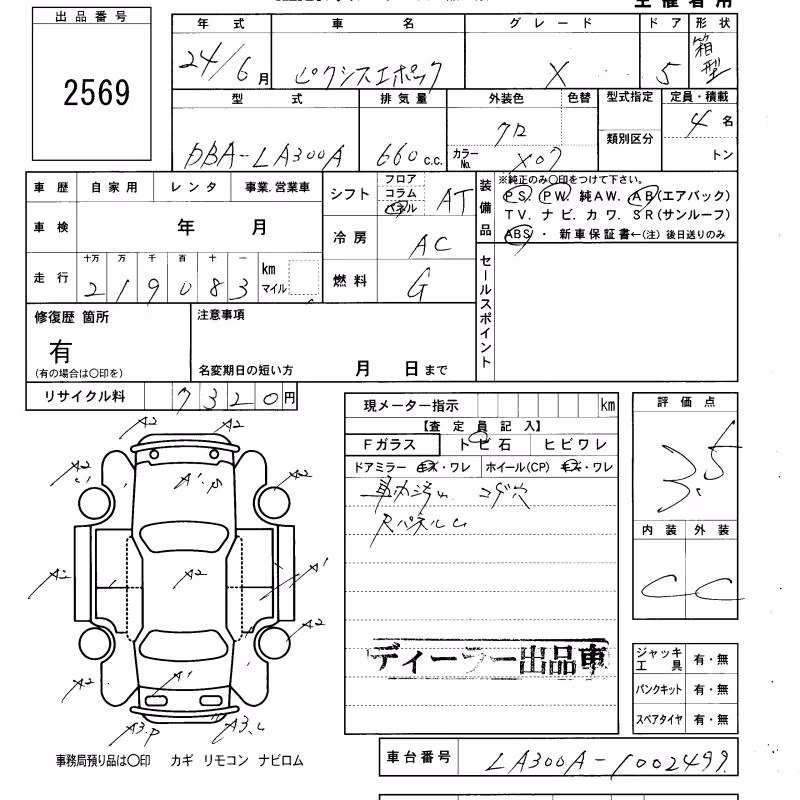 出品番号
2569
年式 車名 グレード ドア 形状
24/6月 ピクシスエポック X 5 箱型
型式 排気量 外装色 色替 型式指定 定員・積載
DBA-LA300A 660c.c. クロ 類別区分 4名
カラーNo. X07 トン
車歴 自家用 レンタ 事業.営業車
車検 年 月
走行 十万 万 千 百 十 一 km
2 1 9 0 8 3 マイル
シフト フロア コラム パネル AT
冷房 AC
燃料 G
装備品
※純正のみ〇印をつけて下さい。
PS. PW. 純AW. AB(エアバック)
TV. ナビ. カワ. SR(サンルーフ)
ABS ・ 新車保証書←(注) 後日送りのみ
セールスポイント
修復歴 箇所
有
(有の場合は〇印を)
注意事項
名変期日の短い方 月 日まで
リサイクル料 7320円
現メーター指示 km
【査定員記入】
Fガラス トビ石 ヒビワレ
ドアミラー キズ・ワレ ホイール(CP) キズ・ワレ
車内汚れ コゲ穴
RパネルU
ディーラー出品車
評価点
3.5
内装 外装
C C
ジャッキ工具 有・無
パンクキット 有・無
スペアタイヤ 有・無
A2 A2
A2 A1.P A2
A2 A2 A1
A2
A2 A1
A3.P A3.L
事務局預り品は〇印 カギ リモコン ナビロム
車台番号 LA300A-1002499